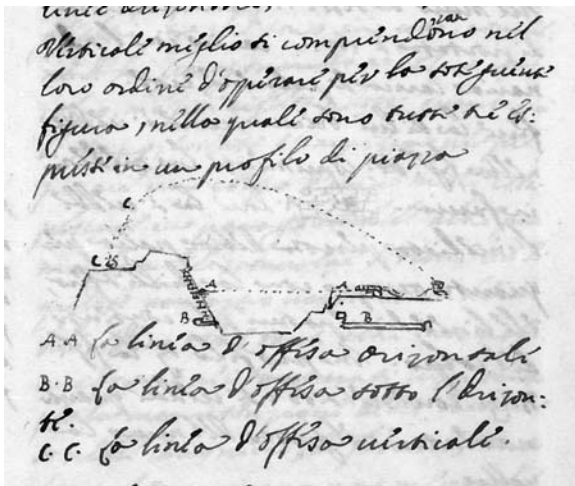 linee orizontali,
Verticale meglio si comprendono nel
loro ordine d'operare per la sotseguente
figura, nella quale sono tutte tre es:
presse in un profilo di piazza
C.
C A A
B B
A.A La linea d'offesa orizontale
B.B La linea d'offesa sotto l'Orizon:
te.
C.C. La linea d'offesa verticale.